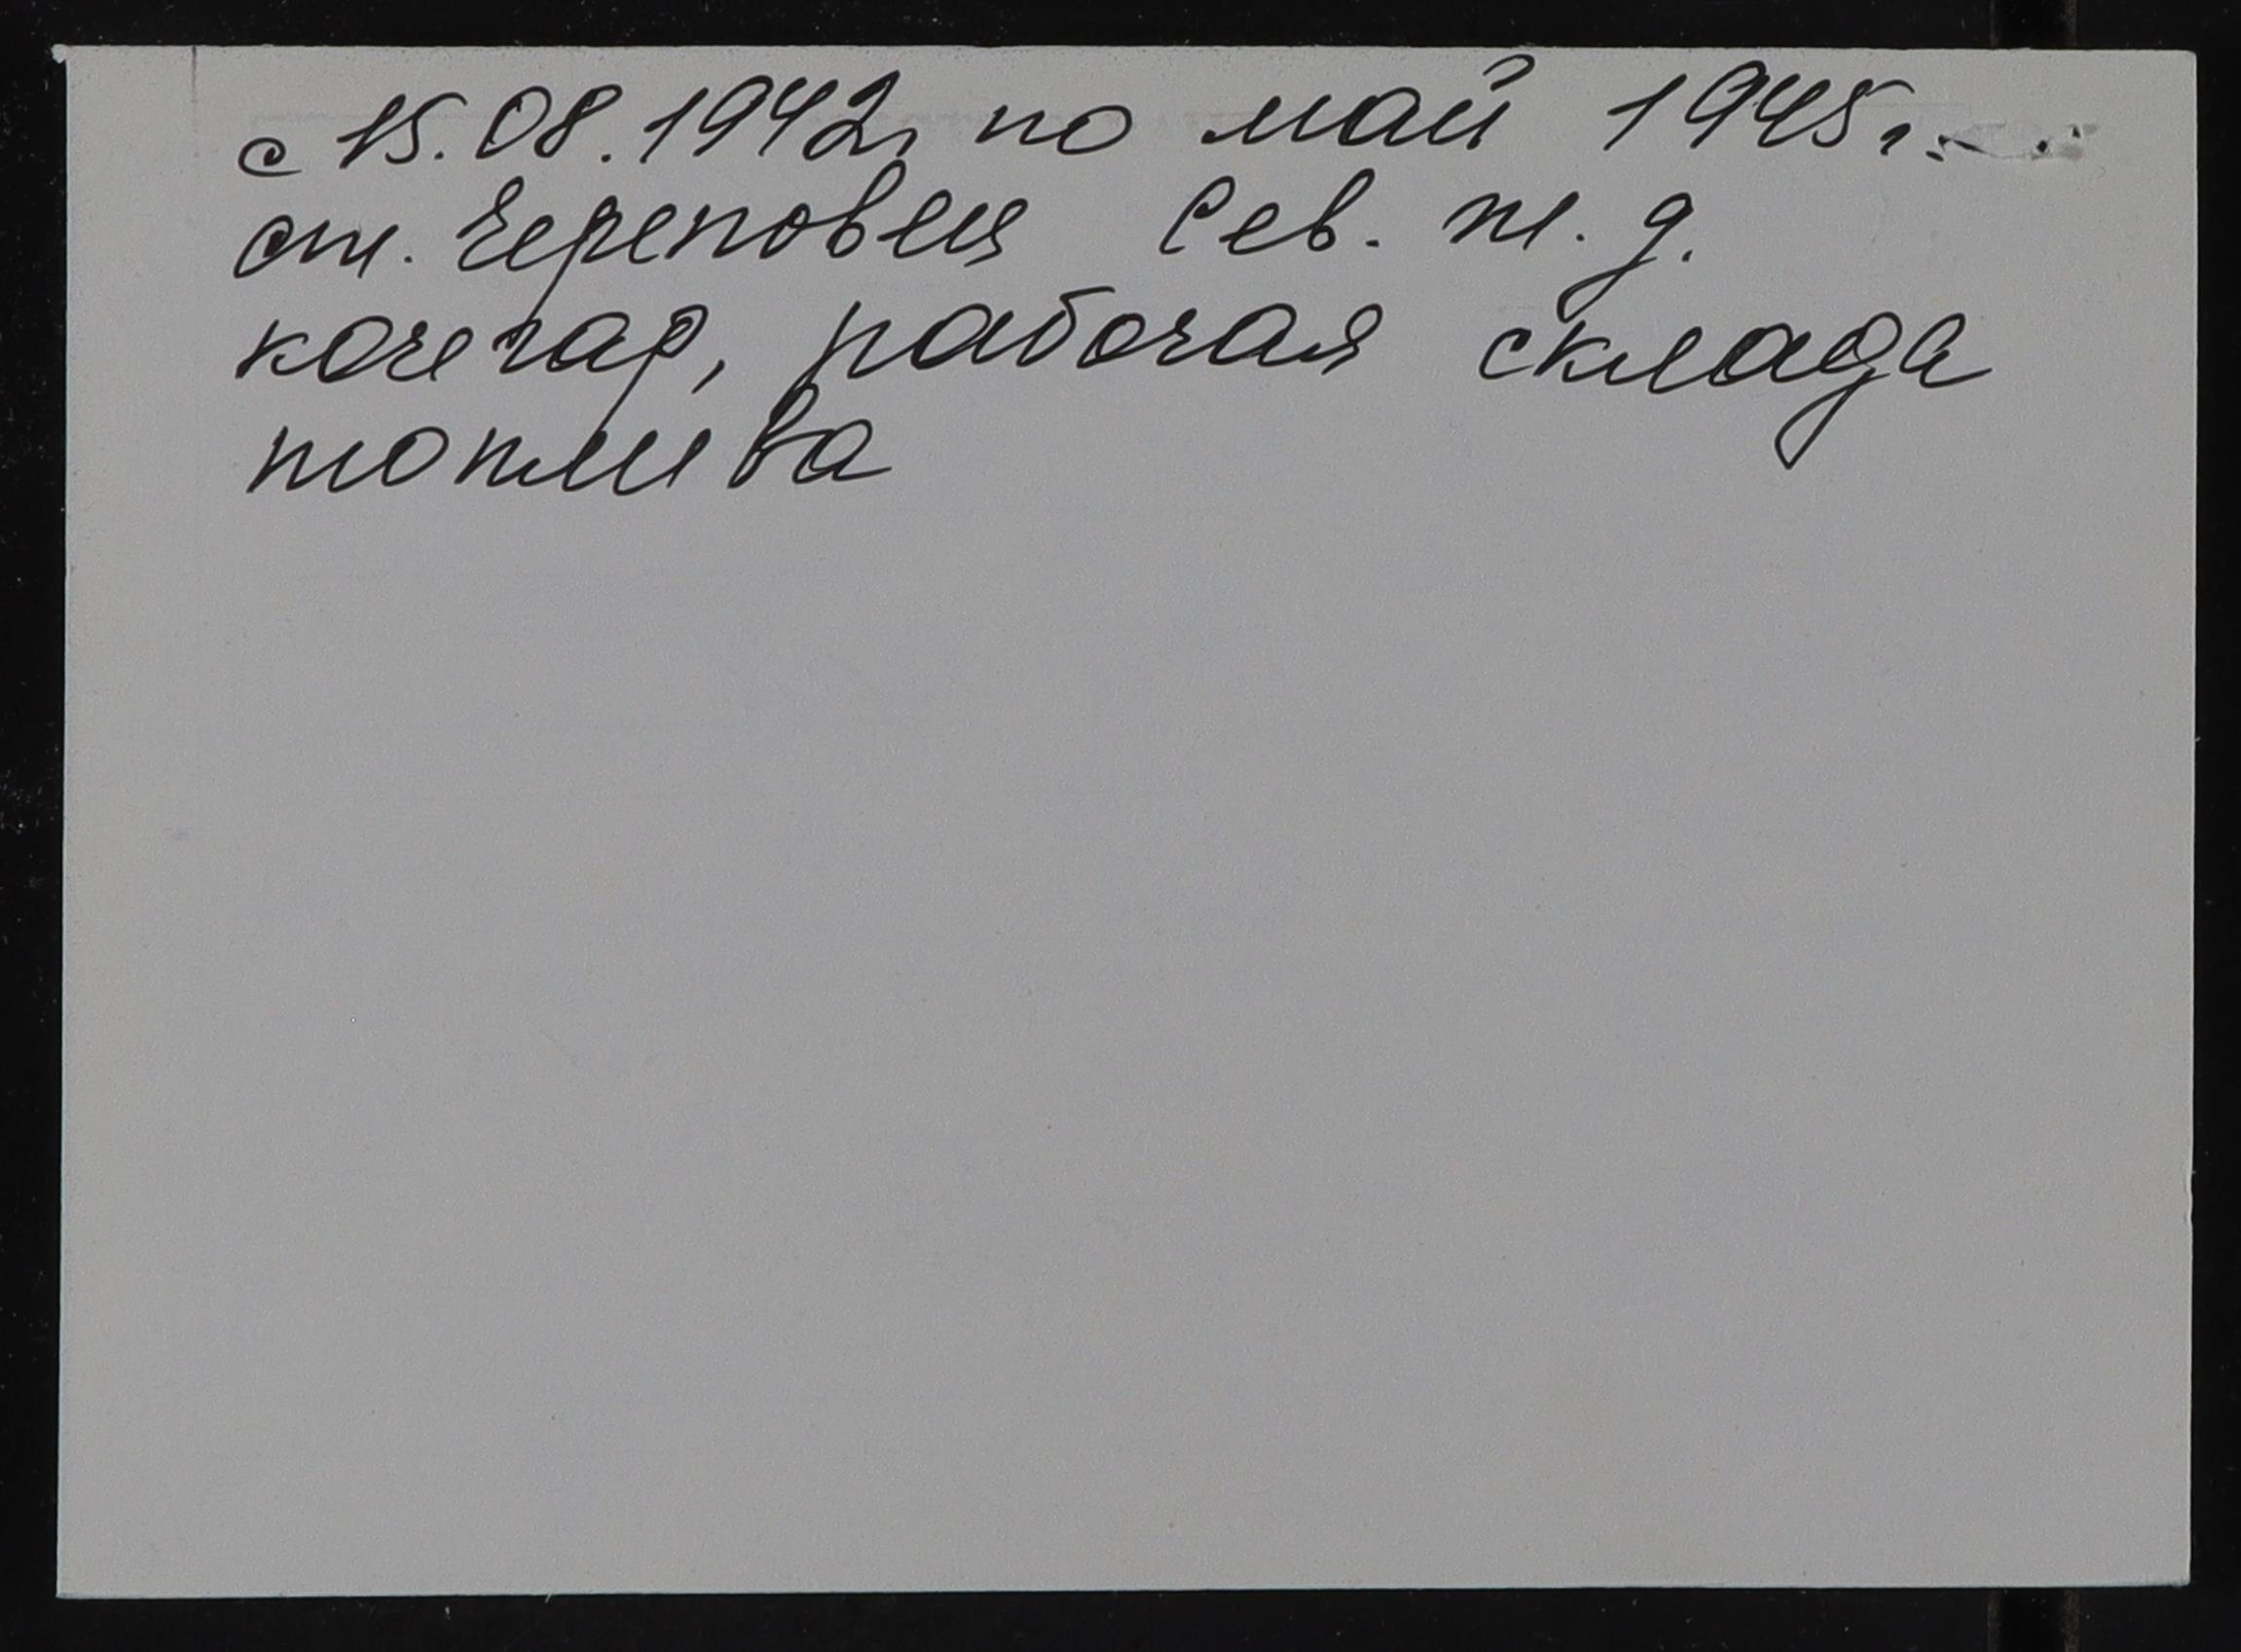 с 15.08.1942г по май 1945г.
ст. Череповец Сев. ж. д.
кочегар, рабочая склада
топлива